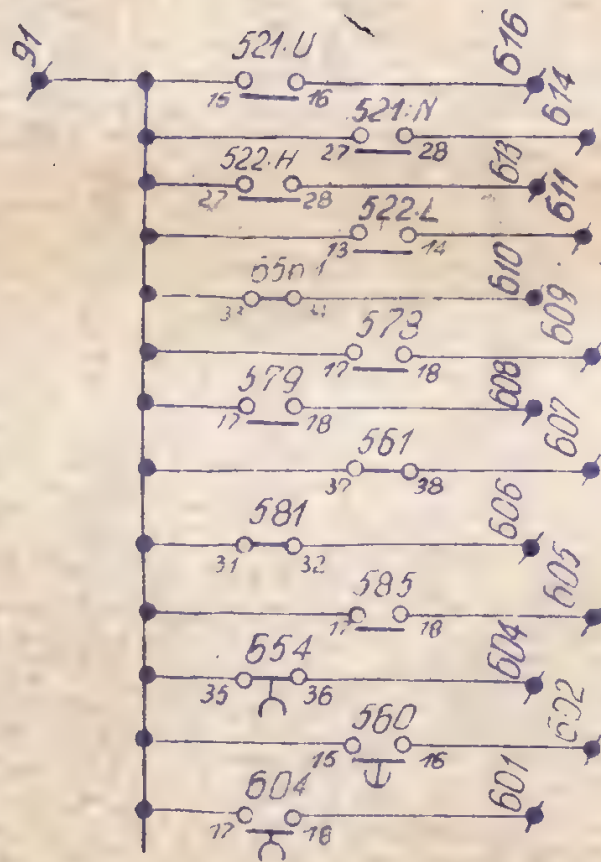 91
521.U
15 16
616
521.N
27 28
614
522.H
27 28
613
522.L
13 14
611
33
610
573
17 18
609
579
17 18
608
561
37 38
607
581
31 32
606
585
17 18
605
554
35 36
604
560
15 16
602
604
17 18
601